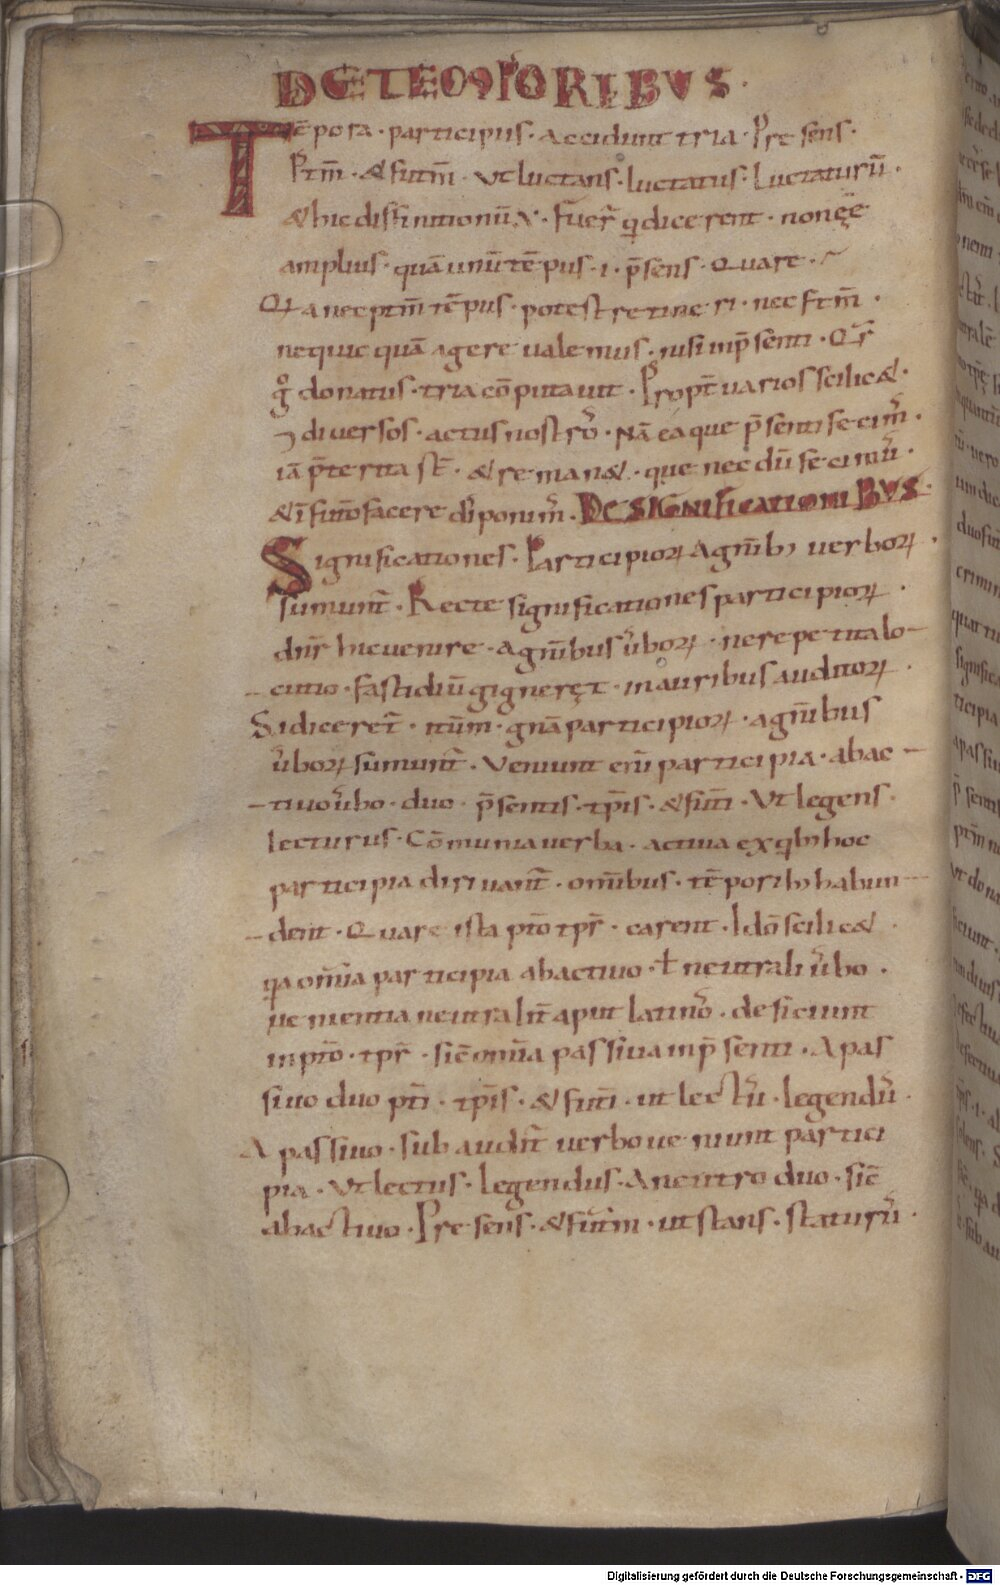 DE TEMPORIBVS.
Tēpora · participiis · accidunt tria · Presens ·
Ptm̄ · & futm̄ · ut luctans · luctatus · luctaturū ·
& hic diffinitionū · fuer̄ q dicerent · non ēē
amplius · quā unū tēpus · i · p̄sens · Quare ·
Q a nec ptm̄ tēpus · potest retineri · nec ftm̄ ·
nequic quā agere ualemus · nisi in p̄senti · Qr
g° donatus · tria cōputauit · Propt̄ varios scilic& ·
diuersos · actus nostrō · Nā ea que p̄senti fecim̄ ·
iā p̄terita st̄ · & reman& · que nec dū fecimū ·
& ī futuō facere diponim̄ · DE SIGNIFICATIONIBVS ·
Significationes · Participioꝝ a gn̄ib; uerboꝝ ·
sumunt̄ · Recte significationes participioꝝ ·
dn̄r hic uenire · a gn̄ibus ūboꝝ · ne repetita lo-
-cutio · fastidiū gigneręt · in auribus auditoꝝ ·
Si diceret̄ · itūm · gn̄a participioꝝ · a gn̄ibus
ūboꝝ sumunt̄ · Veniunt enī participia · ab ac-
-tiuo ūbo · duo · p̄sentis · tp̄is · & futi̅ · Vt legens ·
lecturus · Cōmunia uerba · actiua ex qb; hoc
participia diriuant̄ · omībus · tēporib; habun-
-dent · Quare ista ptō tpr̄ · carent · Idō scilic&
qa omīa participia ab actiuo · ł neutrali ūbo ·
uenientia neutralit̄ aput latinō · deficiunt
in ptō · tpr̄ · sic̄ omīa passiua in p̄senti · A pas
siuo duo pti̅ · tp̄is · & futi̅ · ut lectū · legendū ·
A passiuo · subaudit̄ uerbo ueniunt partici
pia · Vt lectus · legendus · A neutro duo · sic̄
ab actiuo · Presens · & futm̄ · ut stans · staturū ·
Digitalisierung gefördert durch die Deutsche Forschungsgemeinschaft - DFG